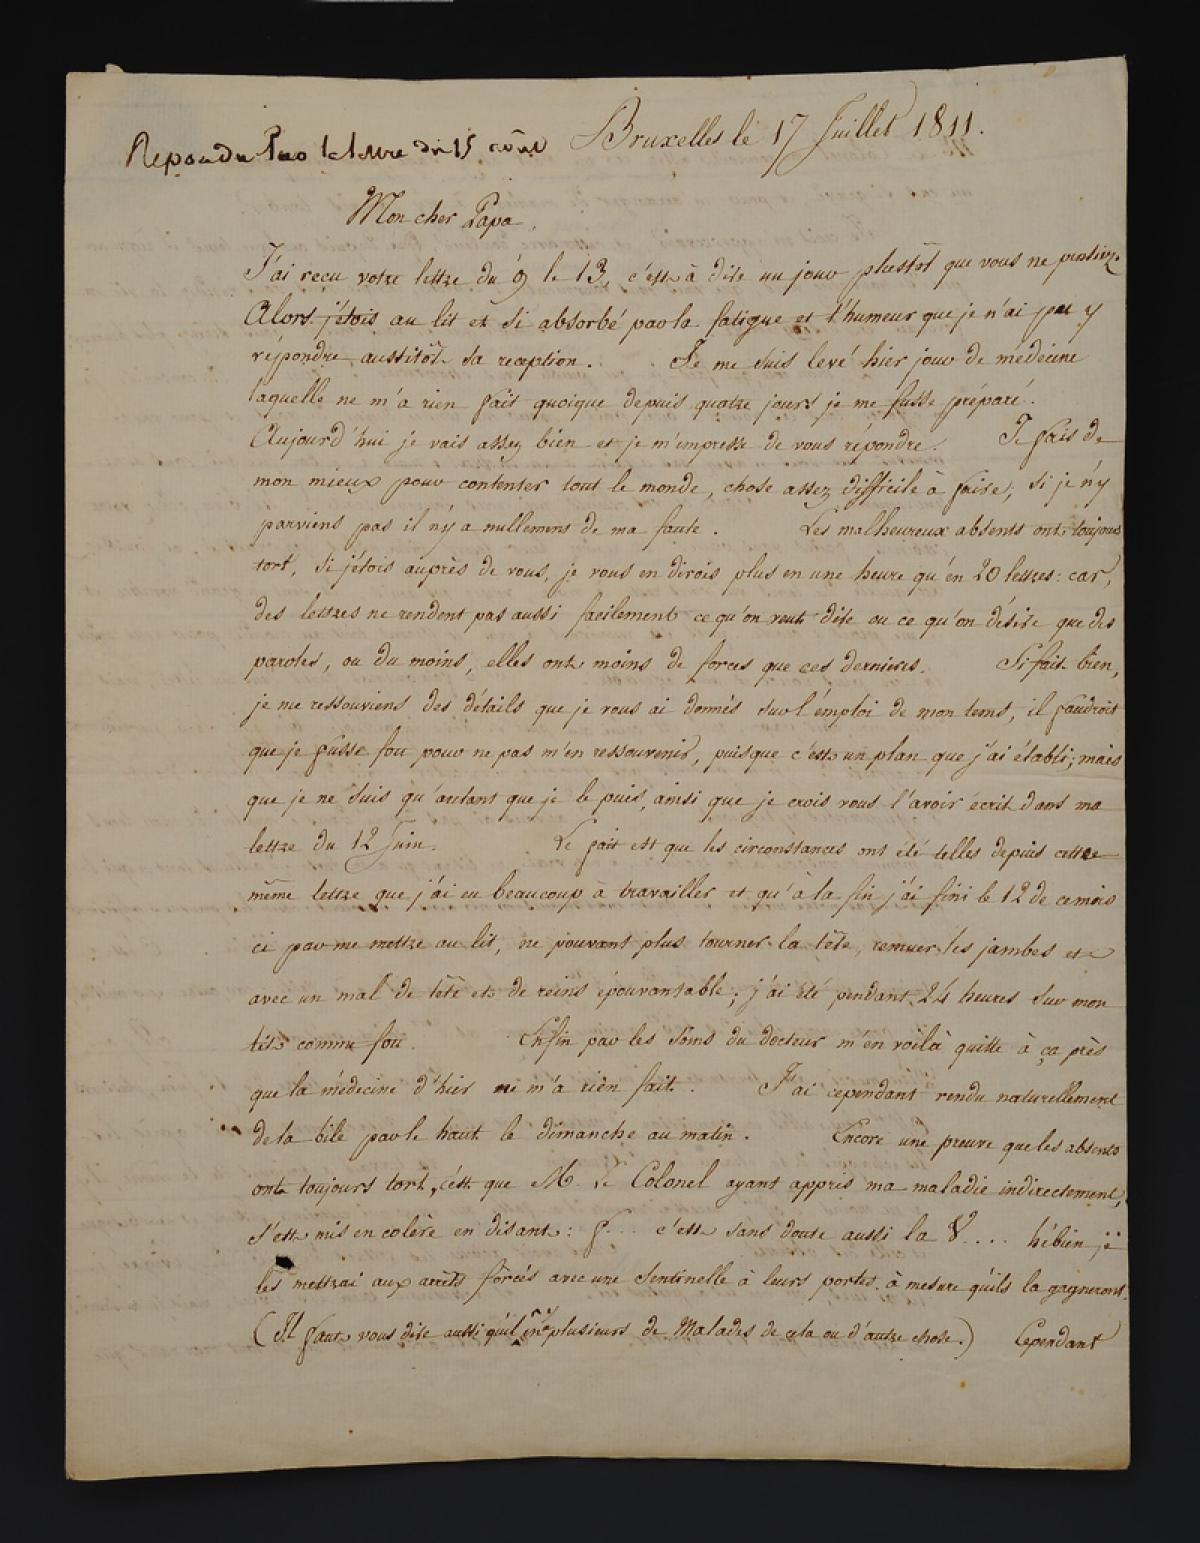 Bruxelles le 17 Juillet 1811.
Repondu Par lettre du 15 août
Mon cher Papa,
J'ai recu votre lettre du 9 le 13, c'est à dire un jour plustôt que vous ne pensiez
Alors j'étois au lit et si absorbé par la fatigue et l'humeur que je n'ai pu y
répondre aussitôt sa reception. Je me suis levé hier jour de médecine
laquelle ne m'a rien fait quoique depuis quatre jours je me fusse préparé.
Aujourd'hui je vais assez bien et je m'empresse de vous répondre. Je fais de
mon mieux pour contenter tout le monde, chose assez difficile à faire, si je n'y
parviens pas il n'y a nullement de ma faute. Les malheureux absents ont toujours
tort, si j'étois auprès de vous, je vous en dirois plus en une heure qu'en 20 lettres: car,
des lettres ne rendent pas aussi facilement ce qu'on veut dire ou ce qu'on désire que des
paroles, ou du moins, elles ont moins de forces que ces dernieres. Si fait bien,
je me ressouviens des détails que je vous ai donnés sur l'emploi de mon tems, il faudroit
que je fusse fou pour ne pas m'en ressouvenir, puisque c'est un plan que j'ai établi; mais
que je ne suis qu'autant que je le puis, ainsi que je crois vous l'avoir écrit dans ma
lettre du 12 Juin. Le fait est que les circonstances ont été telles depuis cette
même lettre que j'ai eu beaucoup à travailler et qu'à la fin j'ai fini le 12 de ce mois
ci par me mettre au lit, ne pouvant plus tourner la tête, remuer les jambes et
avec un mal de tête et de reins épouvantable; j'ai été pendant 24 heures sur mon
lit comme fou. Enfin par les soins du docteur m'en voilà quitte à ça près
que la médecine d'hier ne m'a rien fait. J'ai cependant rendu naturellement
de la bile par le haut le dimanche au matin. Encore une preuve que les absents
ont toujours tort, c'est que M. le Colonel ayant appris ma maladie indirectement,
s'est mis en colère en disant: f... c'est sans doute aussi la V.... hébien je
les mettrai aux arrêts forcés avec une sentinelle à leurs portes à mesure qu'ils la gagneront.
(Il faut vous dire aussi qu'il y en a plusieurs de Malades de cela ou d'autre chose.) Cependant